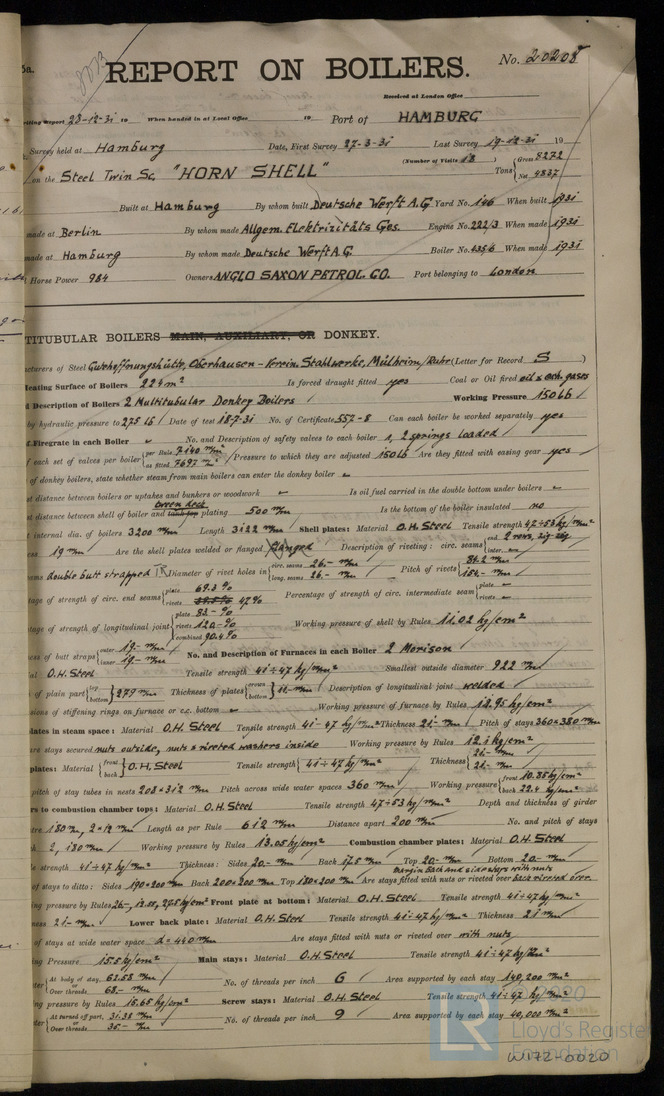 5a.
REPORT ON BOILERS.
No. 20208
Received at London Office
Writing Report 23-12-31 to When handed in at Local Office to Port of HAMBURG
Survey held at Hamburg Date, First Survey 27-3-31 Last Survey 19-12-31 19
(Number of Visits 18)
on the Steel Twin Sc. "HORN SHELL" Tons { Gross 8272 Net 4837
Built at Hamburg By whom built Deutsche Werft A.G Yard No. 146 When built 1931
made at Berlin By whom made Allgem. Elektrizitäts Ges. Engine No. 222/3 When made 1931
made at Hamburg By whom made Deutsche Werft A.G. Boiler No. When made 1931
Horse Power 984 Owners ANGLO SAXON PETROL. CO. Port belonging to London
TITUBULAR BOILERS MAIN, AUXILIARY, OR DONKEY.
cturers of Steel Gutehoffnungshütte, Oberhausen - Verein. Stahlwerke, Mülheim/Ruhr (Letter for Record S )
Heating Surface of Boilers 224 m² Is forced draught fitted yes Coal or Oil fired oil & exh. gases
d Description of Boilers 2 Multitubular Donkey Boilers Working Pressure 150 lb
by hydraulic pressure to 275 lb Date of test 18-7-31 No. of Certificate 557-8 Can each boiler be worked separately yes
f Firegrate in each Boiler No. and Description of safety valves to each boiler 1, 2 springs loaded
f each set of valves per boiler { per Rule 7140 mm² as fitted 7697 m² Pressure to which they are adjusted 150 lb Are they fitted with easing gear yes
of donkey boilers, state whether steam from main boilers can enter the donkey boiler
st distance between boilers or uptakes and bunkers or woodwork Is oil fuel carried in the double bottom under boilers
st distance between shell of boiler and tween deck plating 500 mm Is the bottom of the boiler insulated no
t internal dia. of boilers 3200 mm Length 3122 mm Shell plates: Material O.H. Steel Tensile strength 47÷53 kg/mm²
ess 19 mm Are the shell plates welded or flanged flanged Description of riveting: circ. seams { end 2 rows, zig zag inter.
ams double butt strapped Diameter of rivet holes in { circ. seams 26.- mm long. seams 26.- mm Pitch of rivets { 84.2 mm 154.- mm
tage of strength of circ. end seams { plate 69.3 % rivets 47 % Percentage of strength of circ. intermediate seam { plate rivets
tage of strength of longitudinal joint { plate 83.- % rivets 120.- % combined 90.4 % Working pressure of shell by Rules 11.02 kg/cm²
ess of butt straps { outer 19.- mm inner 19.- mm No. and Description of Furnaces in each Boiler 2 Morison
l O.H. Steel Tensile strength 41÷47 kg/mm² Smallest outside diameter 922 mm
of plain part { top bottom } 279 mm Thickness of plates { crown bottom } 11.- mm Description of longitudinal joint welded
sions of stiffening rings on furnace or c.c. bottom Working pressure of furnace by Rules 12.95 kg/cm²
plates in steam space: Material O.H. Steel Tensile strength 41÷47 kg/mm² Thickness 21.- mm Pitch of stays 360×380 mm
are stays secured nuts outside, nuts & riveted washers inside Working pressure by Rules 12.1 kg/cm²
plates: Material { front back } O.H. Steel Tensile strength { 41÷47 kg/mm² Thickness { 26.- mm 21.- mm
pitch of stay tubes in nests 208×312 mm Pitch across wide water spaces 360 mm Working pressure { front 10.85 kg/cm² back 22.4 kg/cm²
rs to combustion chamber tops: Material O.H. Steel Tensile strength 47÷53 kg/mm² Depth and thickness of girder
tre 180 m, 2×12 mm Length as per Rule 612 mm Distance apart 200 mm No. and pitch of stays
h 2, 180 mm Working pressure by Rules 13.05 kg/cm² Combustion chamber plates: Material O.H. Steel
le strength 41÷47 kg/mm² Thickness: Sides 20.- mm Back 17.5 mm Top 20.- mm Bottom 20.- mm
margin back and side stays with nuts
of stays to ditto: Sides 190×200 mm Back 200×200 mm Top 180×200 mm Are stays fitted with nuts or riveted over
ing pressure by Rules Front plate at bottom: Material O.H. Steel Tensile strength 41÷47 kg/mm²
ness 21.- mm Lower back plate: Material O.H. Steel Tensile strength 41÷47 kg/mm² Thickness 21 mm
of stays at wide water space d=440 mm Are stays fitted with nuts or riveted over with nuts
ng Pressure 15.5 kg/cm² Main stays: Material O.H. Steel Tensile strength 41÷47 kg/mm²
ter { At body of stay, 62.58 mm or Over threads 68.- mm No. of threads per inch 6 Area supported by each stay 140,200 mm²
ng pressure by Rules 15.65 kg/cm² Screw stays: Material O.H. Steel Tensile strength 41÷47 kg/mm²
ter { At turned off part, 31.38 mm or Over threads 35.- mm No. of threads per inch 9 Area supported by each stay 40,000 mm²
© 2020
LR Lloyd's Register
Foundation
W172-0020